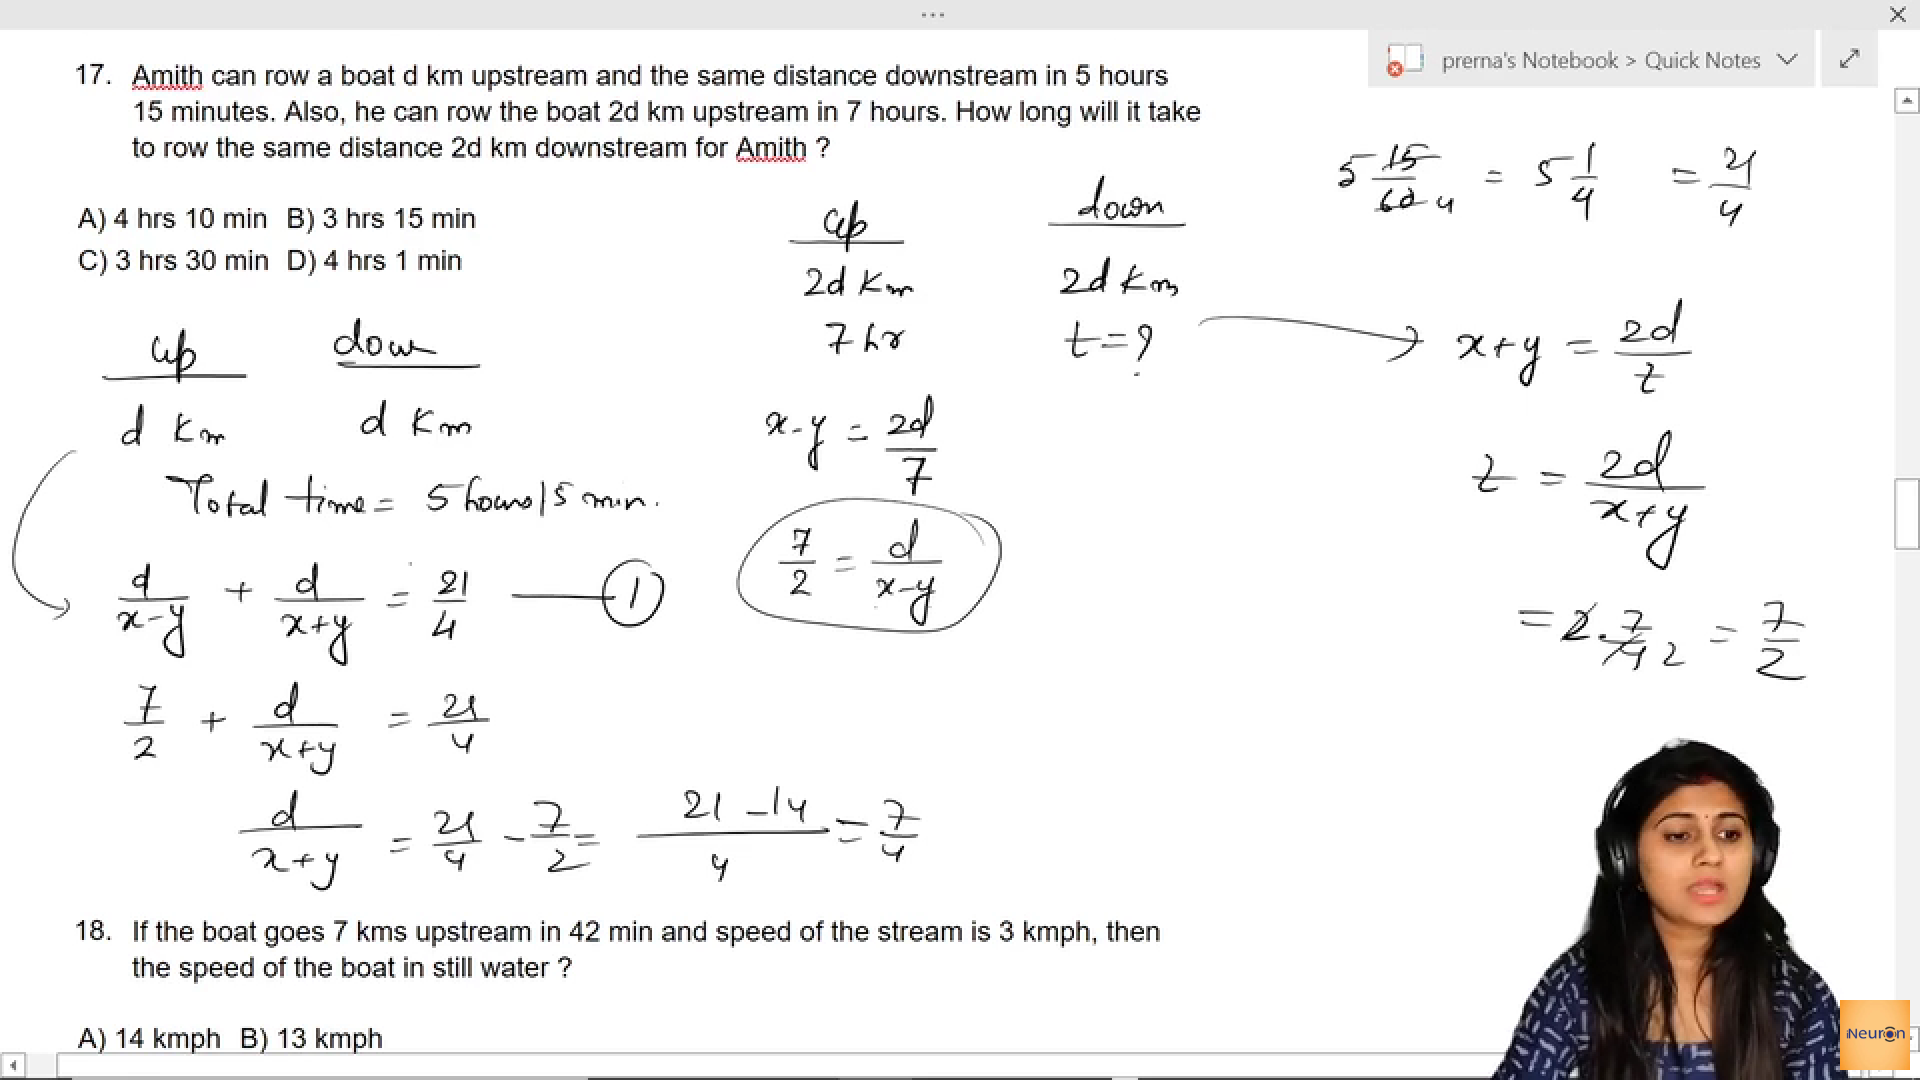 ...
prerna's Notebook > Quick Notes
17. Amith can row a boat d km upstream and the same distance downstream in 5 hours
15 minutes. Also, he can row the boat 2d km upstream in 7 hours. How long will it take
to row the same distance 2d km downstream for Amith ?
A) 4 hrs 10 min B) 3 hrs 15 min
C) 3 hrs 30 min D) 4 hrs 1 min
5 15/60 4 = 5 1/4 = 21/4
up down
2d Km 2d Km
7 hr t = ?
x+y = 2d/t
x-y = 2d/7
t = 2d/x+y
7/2 = d/x-y
= 2 . 7/4 2 = 7/2
up down
d Km d Km
Total time = 5 hours 15 min.
d/x-y + d/x+y = 21/4 1
7/2 + d/x+y = 21/4
d/x+y = 21/4 - 7/2 = 21-14/4 = 7/4
18. If the boat goes 7 kms upstream in 42 min and speed of the stream is 3 kmph, then
the speed of the boat in still water ?
A) 14 kmph B) 13 kmph
Neuron